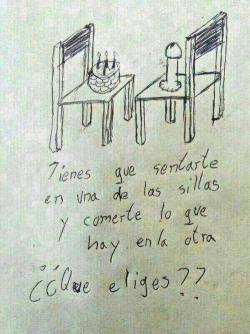 Tienes que sentarte
en una de las sillas
y comerte lo que
hay en la otra
¿¿Que eliges??